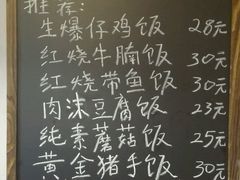 推荐:
生爆仔鸡饭 28元
红烧牛腩饭 30元
红烧带鱼饭 30元
肉沫豆腐饭 23元
纯素蘑菇饭 25元
黄金猪手饭 30元